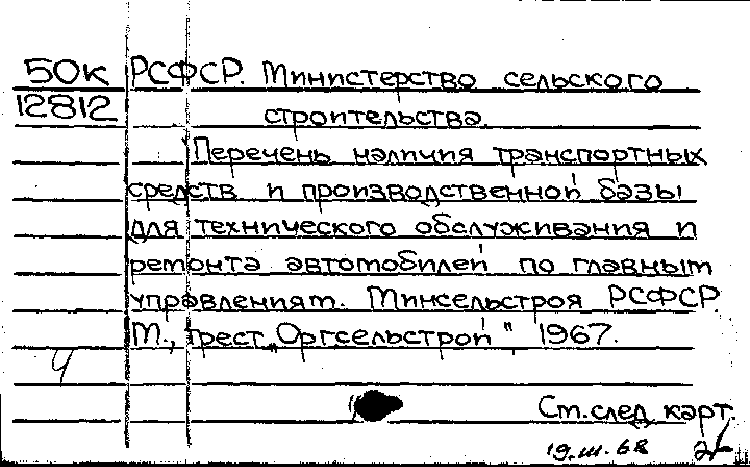 50к РСФСР. Министерство сельского
12812 строительства.
Перечень наличия транспортных
средств и производственной базы
для технического обслуживания и
ремонта автомобилей по главным
управлениям. Минсельстроя РСФСР.
М., трест „Оргсельстрой", 1967.
4
См. след. карт.
19.III.68